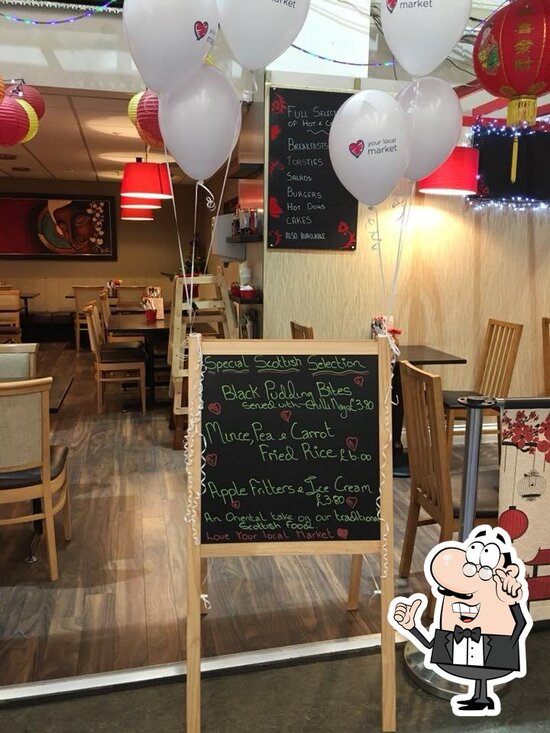 market
market
your local
market
FULL SELEC
OF HOT & C
BREAKFASTS
TOASTIES
SALADS
BURGERS
HOT DOGS
CAKES
ALSO AVAILABLE
Special Scottish Selection
Black Pudding Bites
Served with Chilli Mayo £3.80
Mince, Pea & Carrot
Fried Rice £6.00
Apple Fritters & Ice Cream
£3.80
An Oriental take on our traditional
Scottish Food.
Love Your Local Market